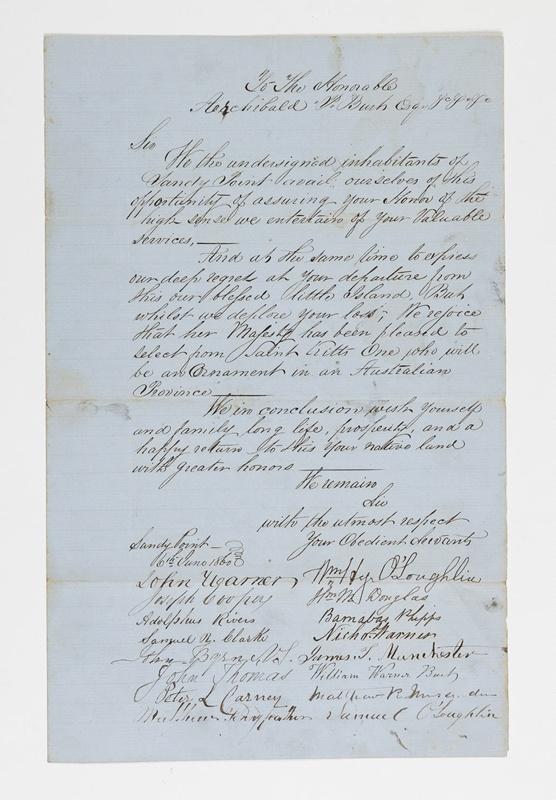 To The Honorable
Archibald P. Burt Esqr
Sir
We the undersigned inhabitants of
Sandy Point avail ourselves of this
opportunity of assuring your Honor of the
high sense we entertain of your Valuable
services,
And at the same time to express
our deep regret at your departure from
this our blessed little Island, But
whilst we deplore your loss, We rejoice
that her Majesty has been pleased to
select from Saint Kitts One who will
be an Ornament in an Australian
Province
We in conclusion wish yourself
and family long life, prosperity, and a
happy return to this your native land
with greater honors
We remain
Sir
with the utmost respect
Your Obedient Servants
Sandy Point
16th June 1860
John Warner
Wm Hy O'Loughlin
Joseph Cooper
Wm M Douglas
Adolphus Rivers
Barnabas Phipps
Samuel N. Clarke
Nichs Warner
Byrne
James S. Manchester
John Thomas
William Warner Burt
Peter L Carney
Matthew
Mathew
Samuel O'Loughlin